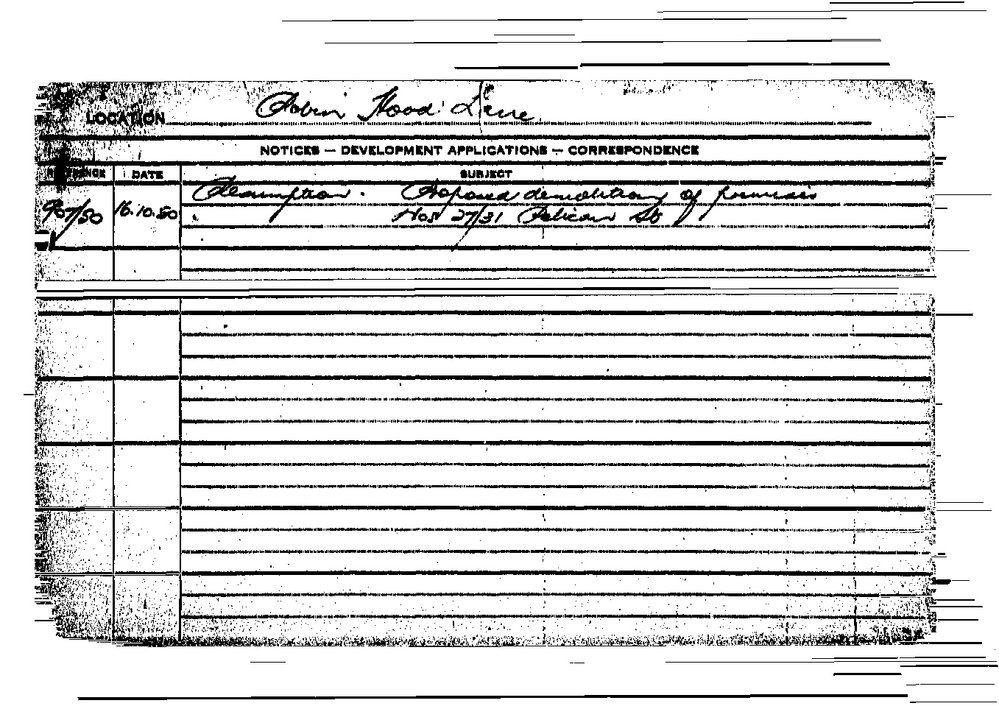 LOCATION Robin Hood Lane
NOTICES — DEVELOPMENT APPLICATIONS — CORRESPONDENCE
REFERENCE DATE SUBJECT
Resumption. Proposed demolition of premises
907/50 16.10.50 Nos 27/31 Pelican St